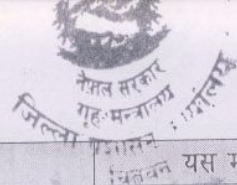 नेपाल सरकार
गृह मन्त्रालय
जिल्ला प्रशासन कार्यालय
चितवन
यस